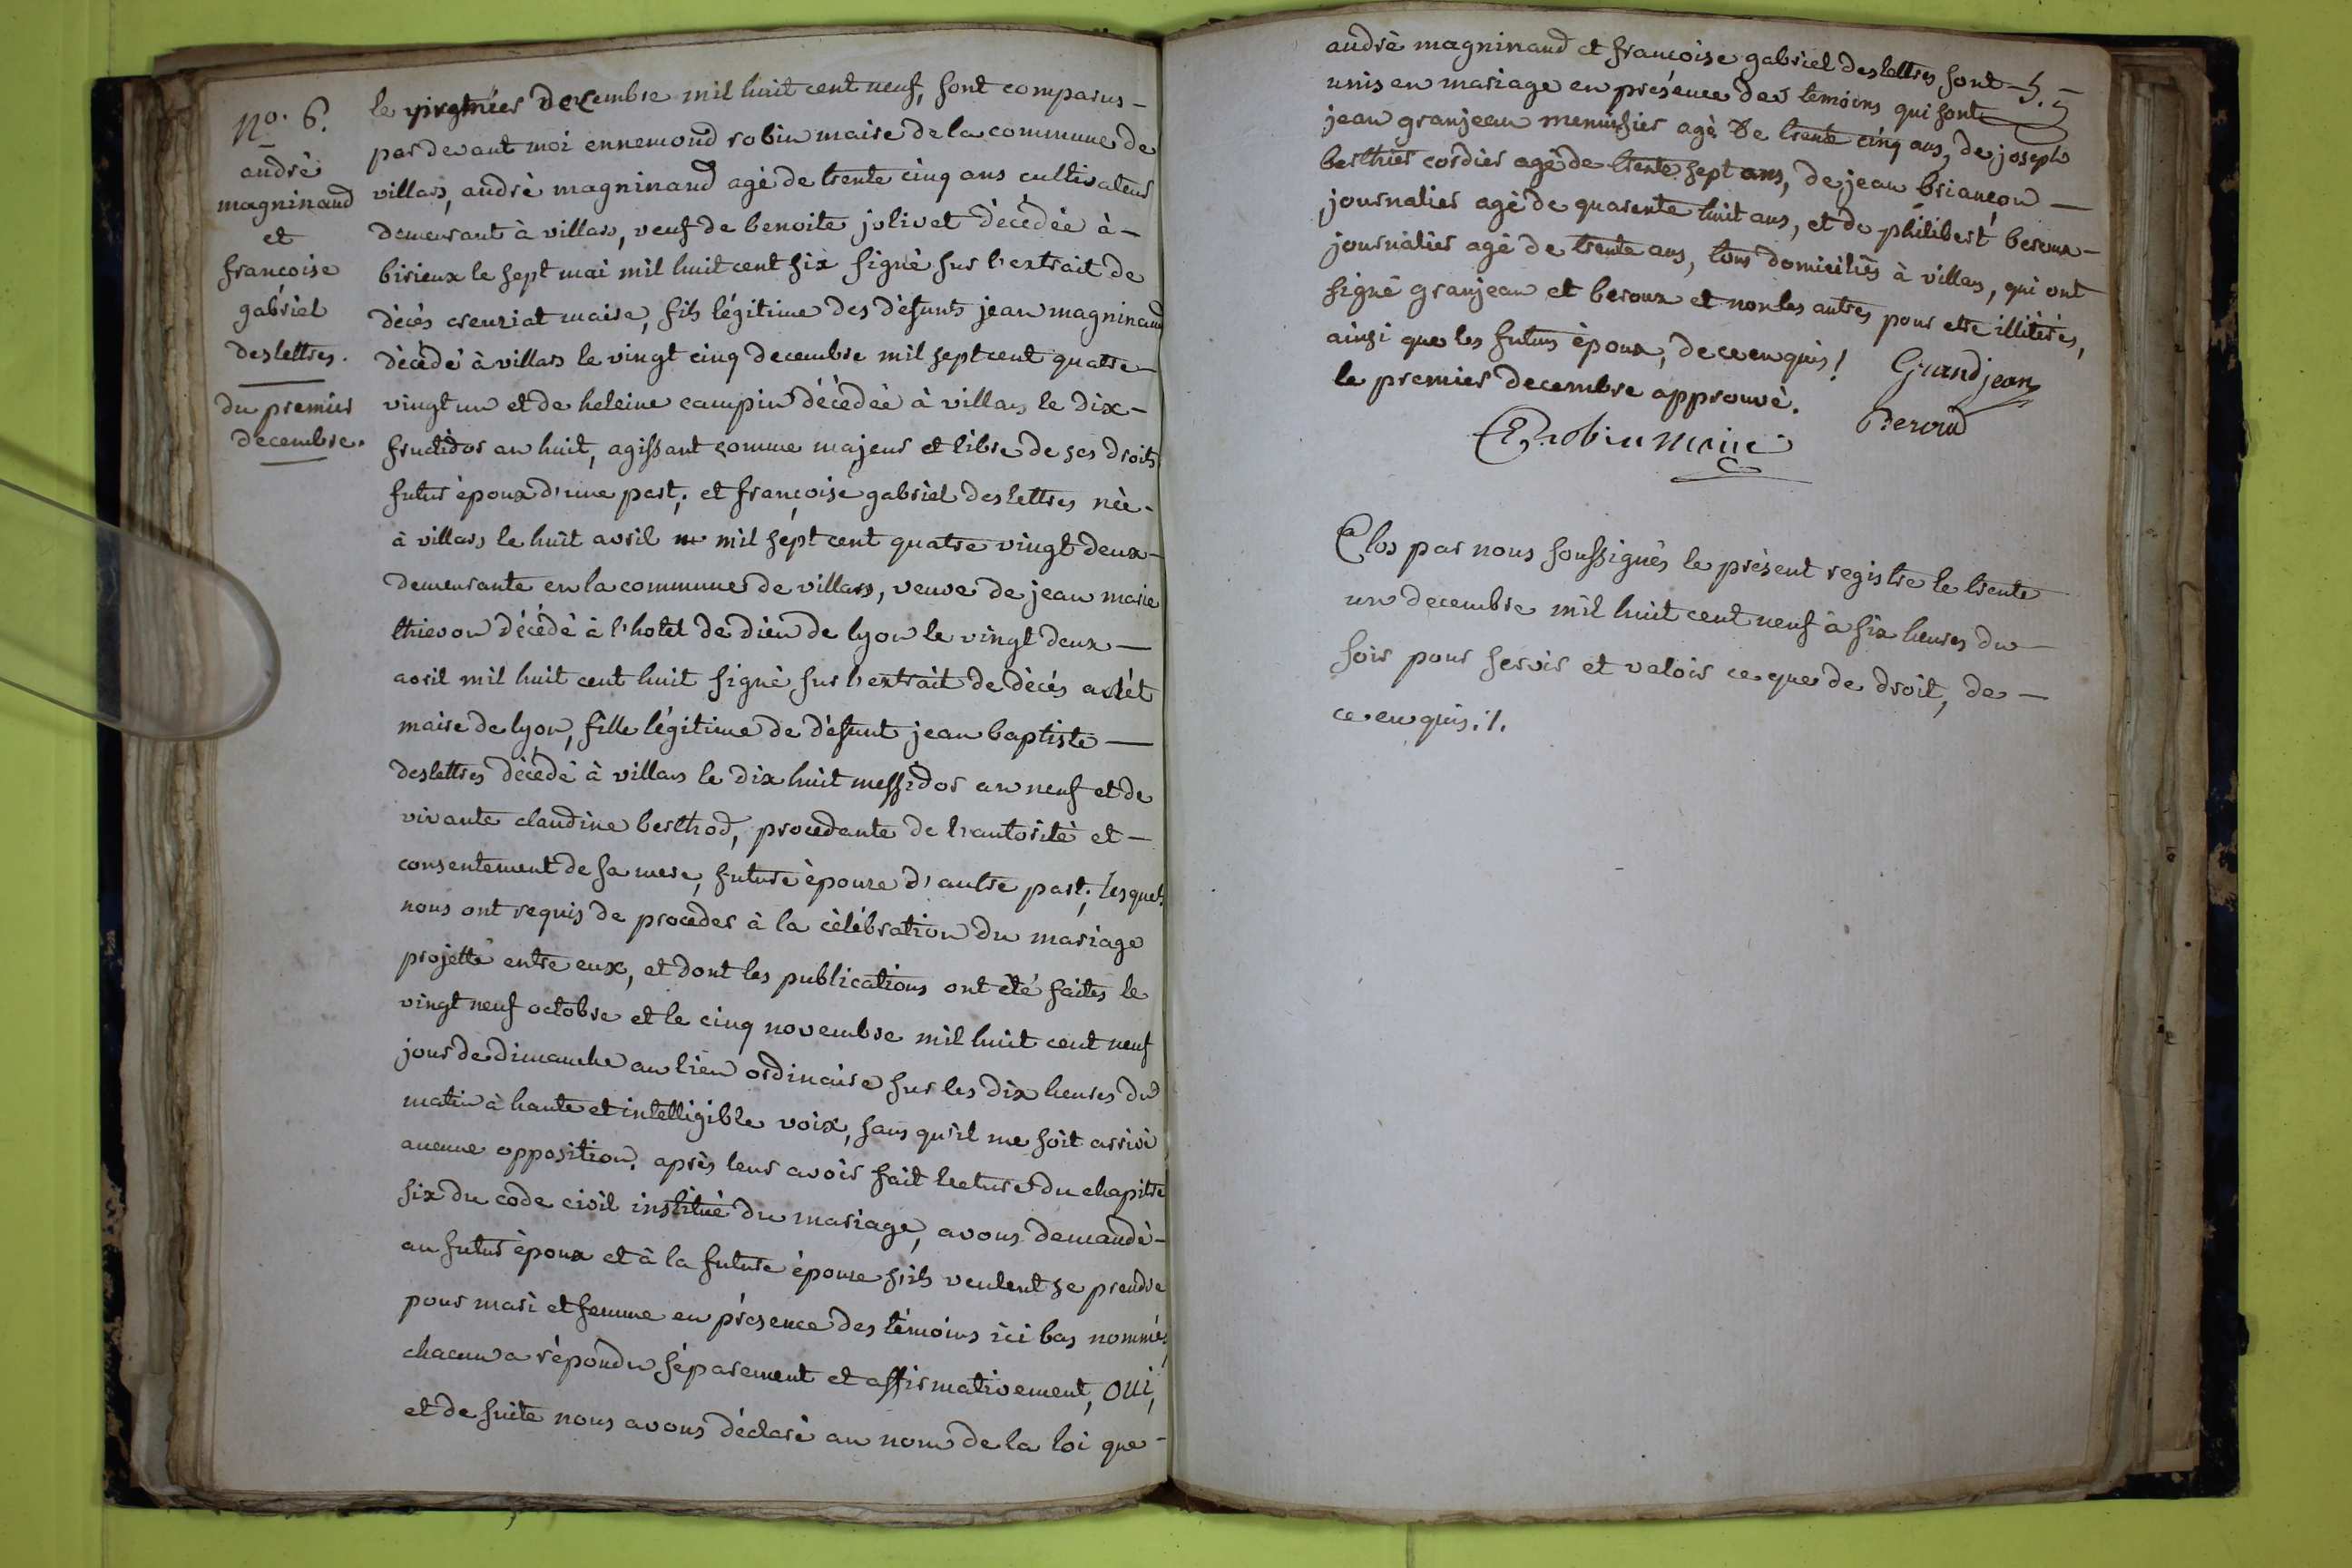 n.o 6.
andré
magninand
et
francoise
gabriel
deslettres.
du premier
decembre.
le premier decembre mil huit cent neuf, sont comparus -
par devant moi ennemond robin maire de la commune de
villars, andrè magninand agè de trente cinq ans cultivateur
demeurant à villars, veuf de benoite jolivet dècèdèe à -
birieux le sept mai mil huit cent six signè sur l'extrait de
dècès creuziat maire, fils légitime des dèfunts jean magninand
dècèdé à villars le vingt cinq decembre mil sept cent quatre -
vingt un et de heleine campin dècèdèe à villars le dix -
fructidor an huit, agissant comme majeur et libre de ses droits
futur èpoux d'une part; et françoise gabriel deslettres nèe -
à villars le huit avril mil sept cent quatre vingt deux -
demeurante en la commune de villars, veuve de jean marie
thievon dècèdè à l'hotel de dieu de lyon le vingt deux -
avril mil huit cent huit signè sur l'extrait de dècès
maire de lyon, fille légitime de dèfunt jean baptiste -
deslettres dècèdè à villars le dix huit messidor an neuf et de
vivante claudine berthod, procedante de l'autorité et -
consentement de sa mere, future èpouse d'autre part; lesquels
nous ont requis de proceder à la cèlébration du mariage
projettè entre eux, et dont les publications ont ètè faites le
vingt neuf octobre et le cinq novembre mil huit cent neuf
jour de dimanche au lieu ordinaire sur les dix heures du
matin à haute et intelligible voix, sans qu'il me soit arrivè
aucune opposition. après leur avoir fait lecture du chapitre
six du code civil institué du mariage, avons demandè -
au futur èpoux et à la future èpouse s'ils veulent se prendre
pour mari et femme en présence des tèmoins ici bas nommés,
chacun a rèpondu sèparement et affirmativement, oui,
et de suite nous avons dèclarè au nom de la loi que -
andrè magninaud et francoise gabriel deslettres sont
unis en mariage en présence des temoins qui sont
jean granjean menuisier agè de trente cinq ans, de joseph
berthier cordier agè de trente sept ans, de jean briançon -
journalier agè de quarente huit ans, et de philibert beroux -
journalier agè de trente ans, tous domiciliès à villars, qui ont
signè granjean et beroux et non les autres pour etre illitèrès,
ainsi que les futurs èpoux, de ce enquis!
le premier decembre approuvè.
Grandjean
Beroud
E. robin maire
Clos par nous soussignès le prèsent registre le trente
un decembre mil huit cent neuf à six heures du -
soir pour servir et valoir ce que de droit, de -
ce enquis./.